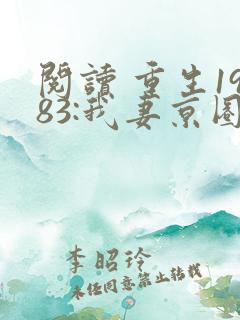 閱讀 重生19
83:我妻京圈
李昭玲
未经同意禁止转载